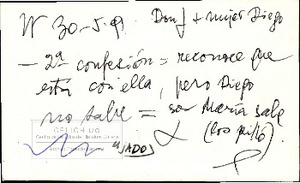 W 30-5-91 Don J + mujer Diego
- 2ª confesión = reconoce que
está con ella, pero Diego
no sabe = sor María sale
(los pilló)
CELICH UC